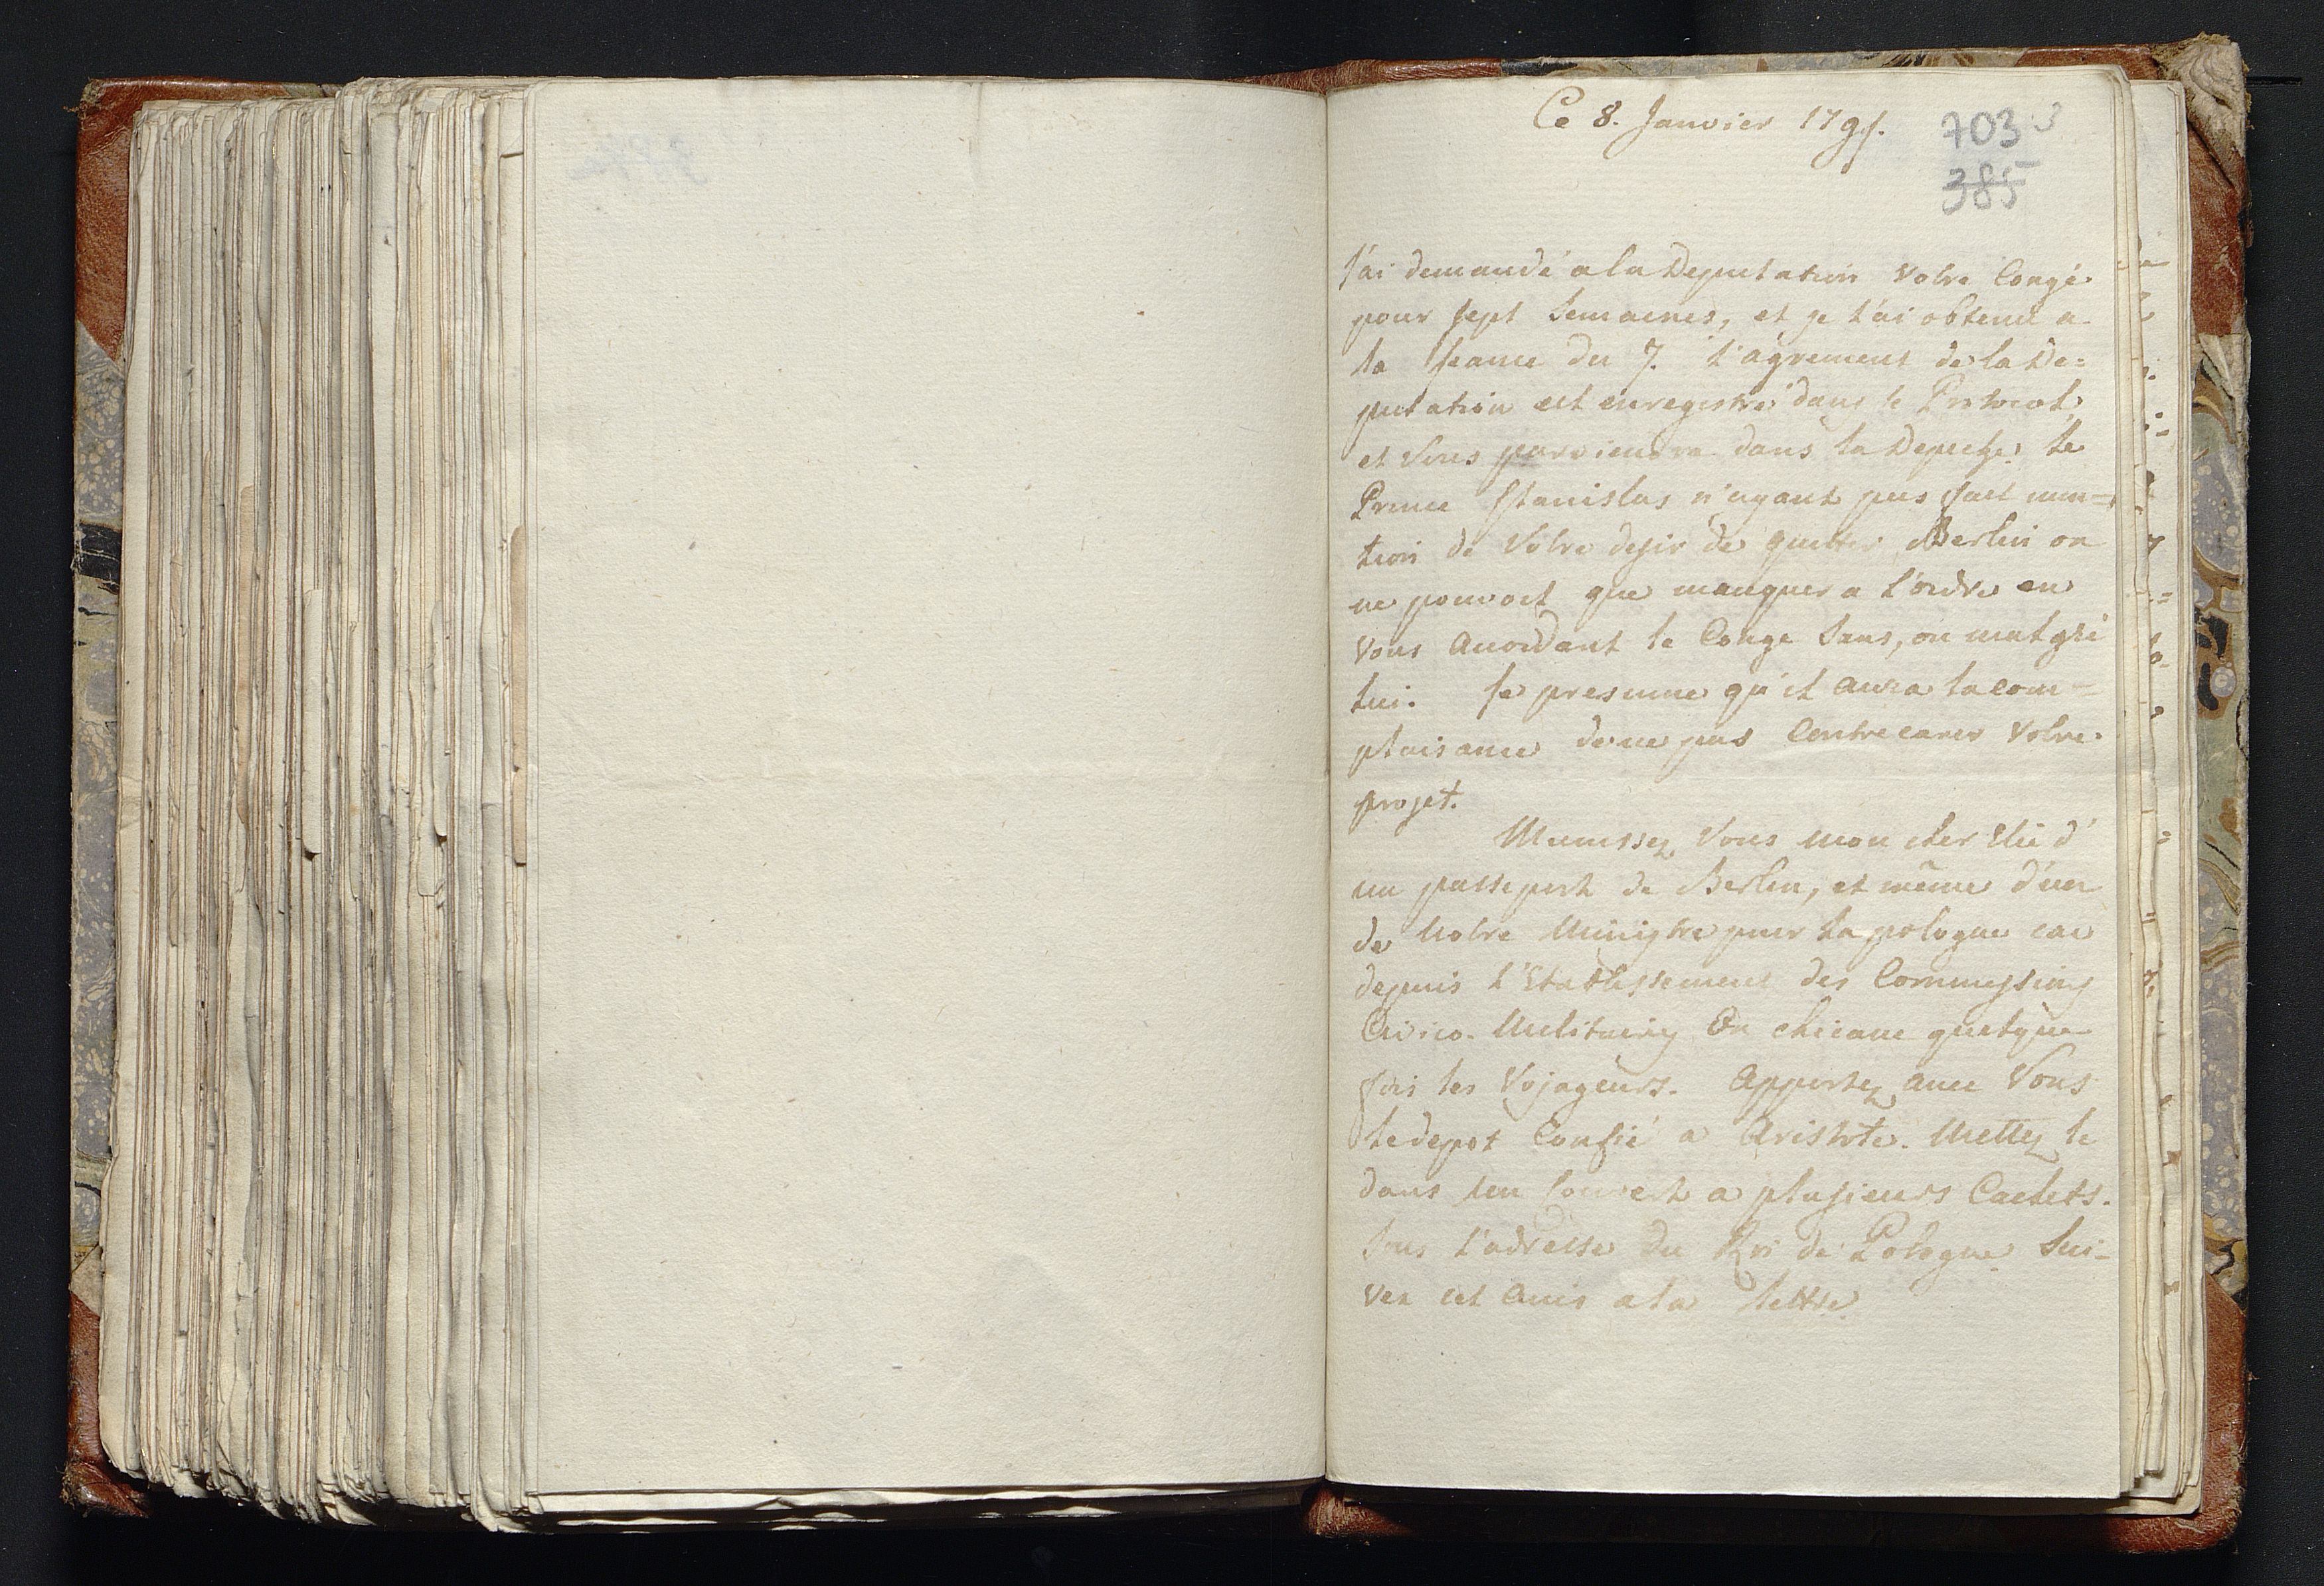 Ce 8. Janvier 1791.
703
385
J'ai demandé a la Deputation Votre Congé
pour sept Semaines, et je l'ai obtenu a
la seance du 7. l'agrement de la De=
putation est enregistré dans le Protocol
et Vous parviendra dans la Depeche. le
Prince Stanislas n'ayant pas fait men=
tion de Votre desir de quitter Berlin on
ne pouvoit que manquer a l'ordre en
Vous accordant le Congé Sans, ou malgré
lui. Je presume qu'il aura la com=
plaisance de ne pas Contrecarer Votre
projet.
Munissez Vous mon cher Elie d'
un passeport de Berlin, et même d'un
de Notre Ministre pour la pologne car
depuis l'Etablissement des Commissions
Civico-Militaires On chicane quelque
fois les Vojageurs. Apportez avec Vous
le depot Confié a Aristote. Mettez le
dans un Couvert a plusieurs Cachets.
Sous l'adresse du Roi de Pologne. Sui=
vez cet avis a la lettre.